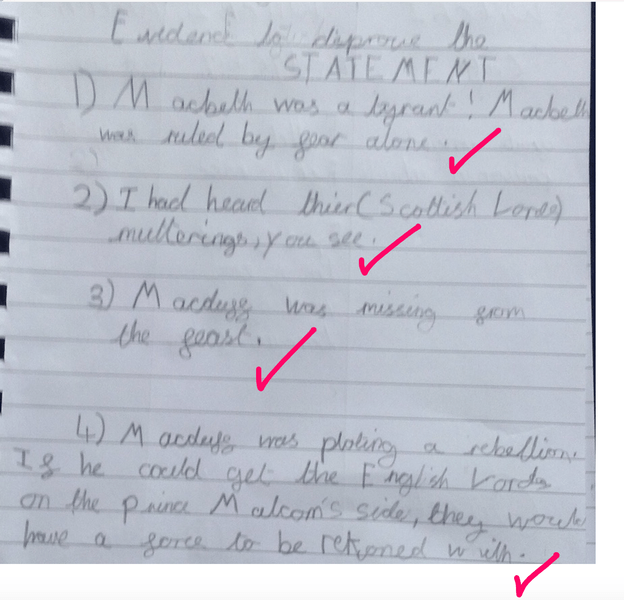 Evidence to disprove the
STATEMENT
1) Macbeth was a tyrant! Macbeth
was ruled by fear alone.
2) I had heard thier (Scottish Lores)
mutterings, you see.
3) Macduff was missing from
the feast.
4) Macduff was ploting a rebellion.
If he could get the English Lords
on the prince Malcom's side, they would
have a force to be rekoned with.